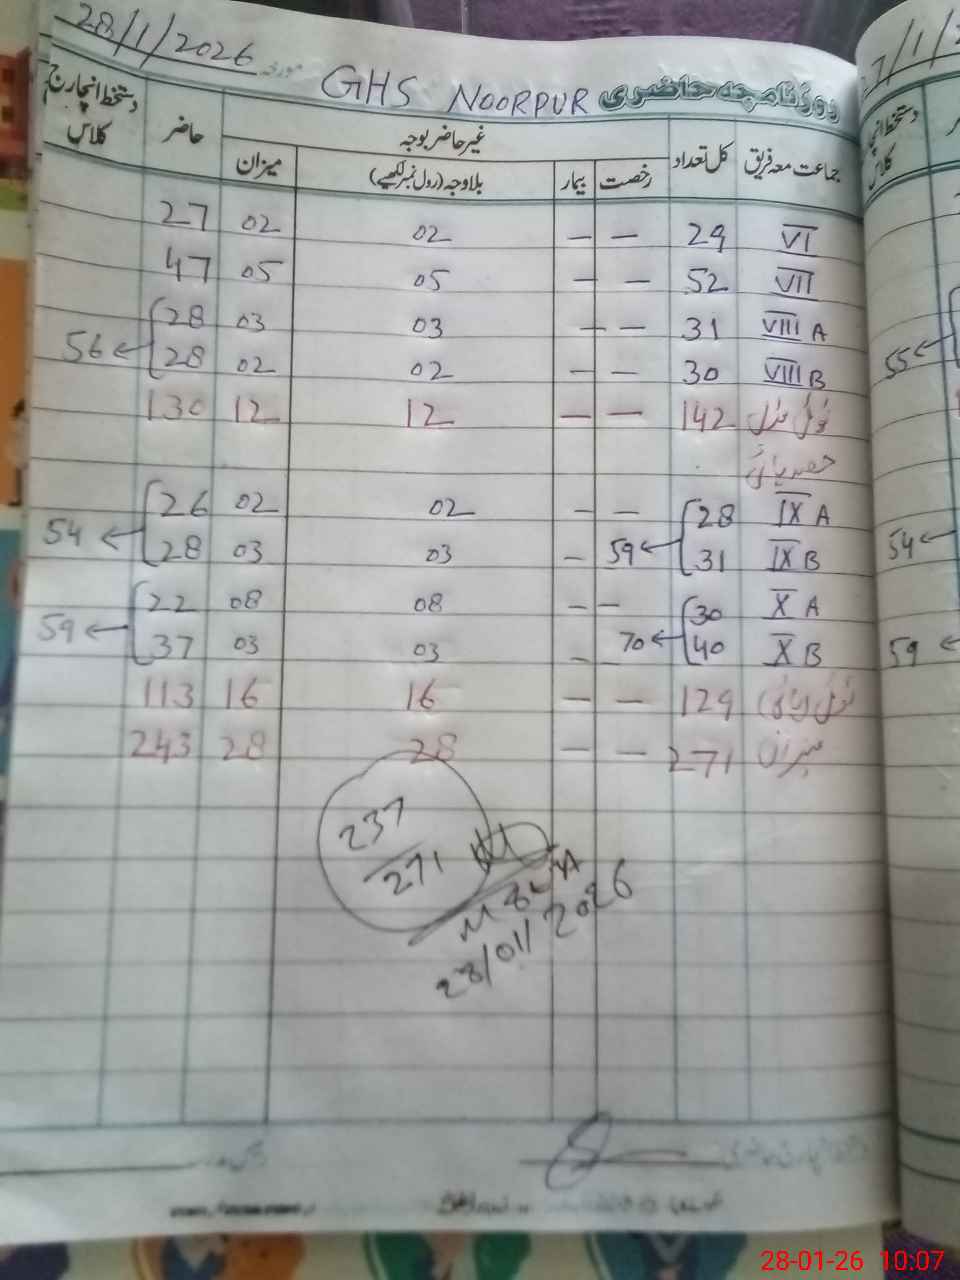 28/1/2026 مورخہ GHS NOORPUR روزنامچہ حاضری
جماعت معہ فریق کل تعداد غیر حاضر بوجہ حاضر دستخط انچارج کلاس
رخصت بیمار بلاوجہ (رول نمبر لکھیے) میزان
VI 29 — — 02 02 27
VII 52 — — 05 05 47
VIII A 31 — — 03 03 28
VIII B 30 — — 02 02 28
56
ٹوٹل مڈل 142 — — 12 12 130
حصہ ہائی
IX A 28 — — 02 02 26
IX B 31 59 — 03 03 28
54
X A 30 — — 08 08 22
X B 40 70 — 03 03 37
59
ٹوٹل ہائی 129 — — 16 16 113
میزان 271 — — 28 28 243
237
271
28/01/2026
7/1/2
دستخط انچارج
کلاس
55
54
59
28-01-26 10:07